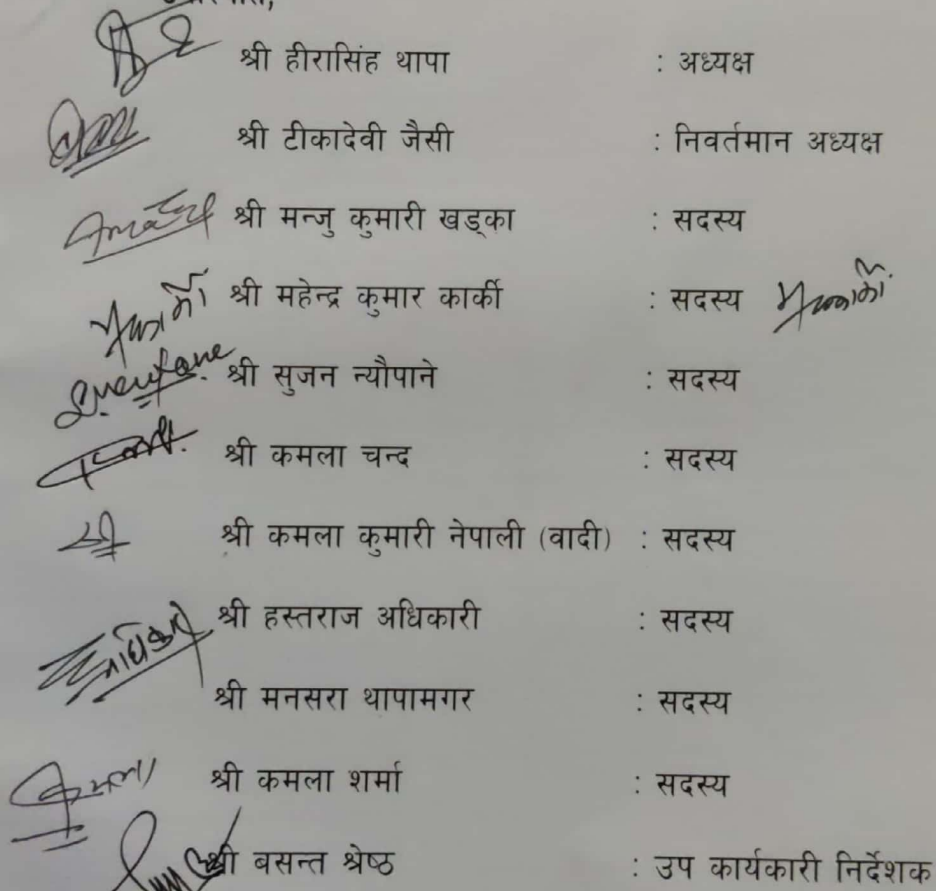 श्री हीरासिंह थापा : अध्यक्ष
श्री टीकादेवी जैसी : निवर्तमान अध्यक्ष
श्री मन्जु कुमारी खड्का : सदस्य
श्री महेन्द्र कुमार कार्की : सदस्य
श्री सुजन न्यौपाने : सदस्य
श्री कमला चन्द : सदस्य
श्री कमला कुमारी नेपाली (वादी) : सदस्य
श्री हस्तराज अधिकारी : सदस्य
श्री मनसरा थापामगर : सदस्य
कमला श्री कमला शर्मा : सदस्य
श्री बसन्त श्रेष्ठ : उप कार्यकारी निर्देशक